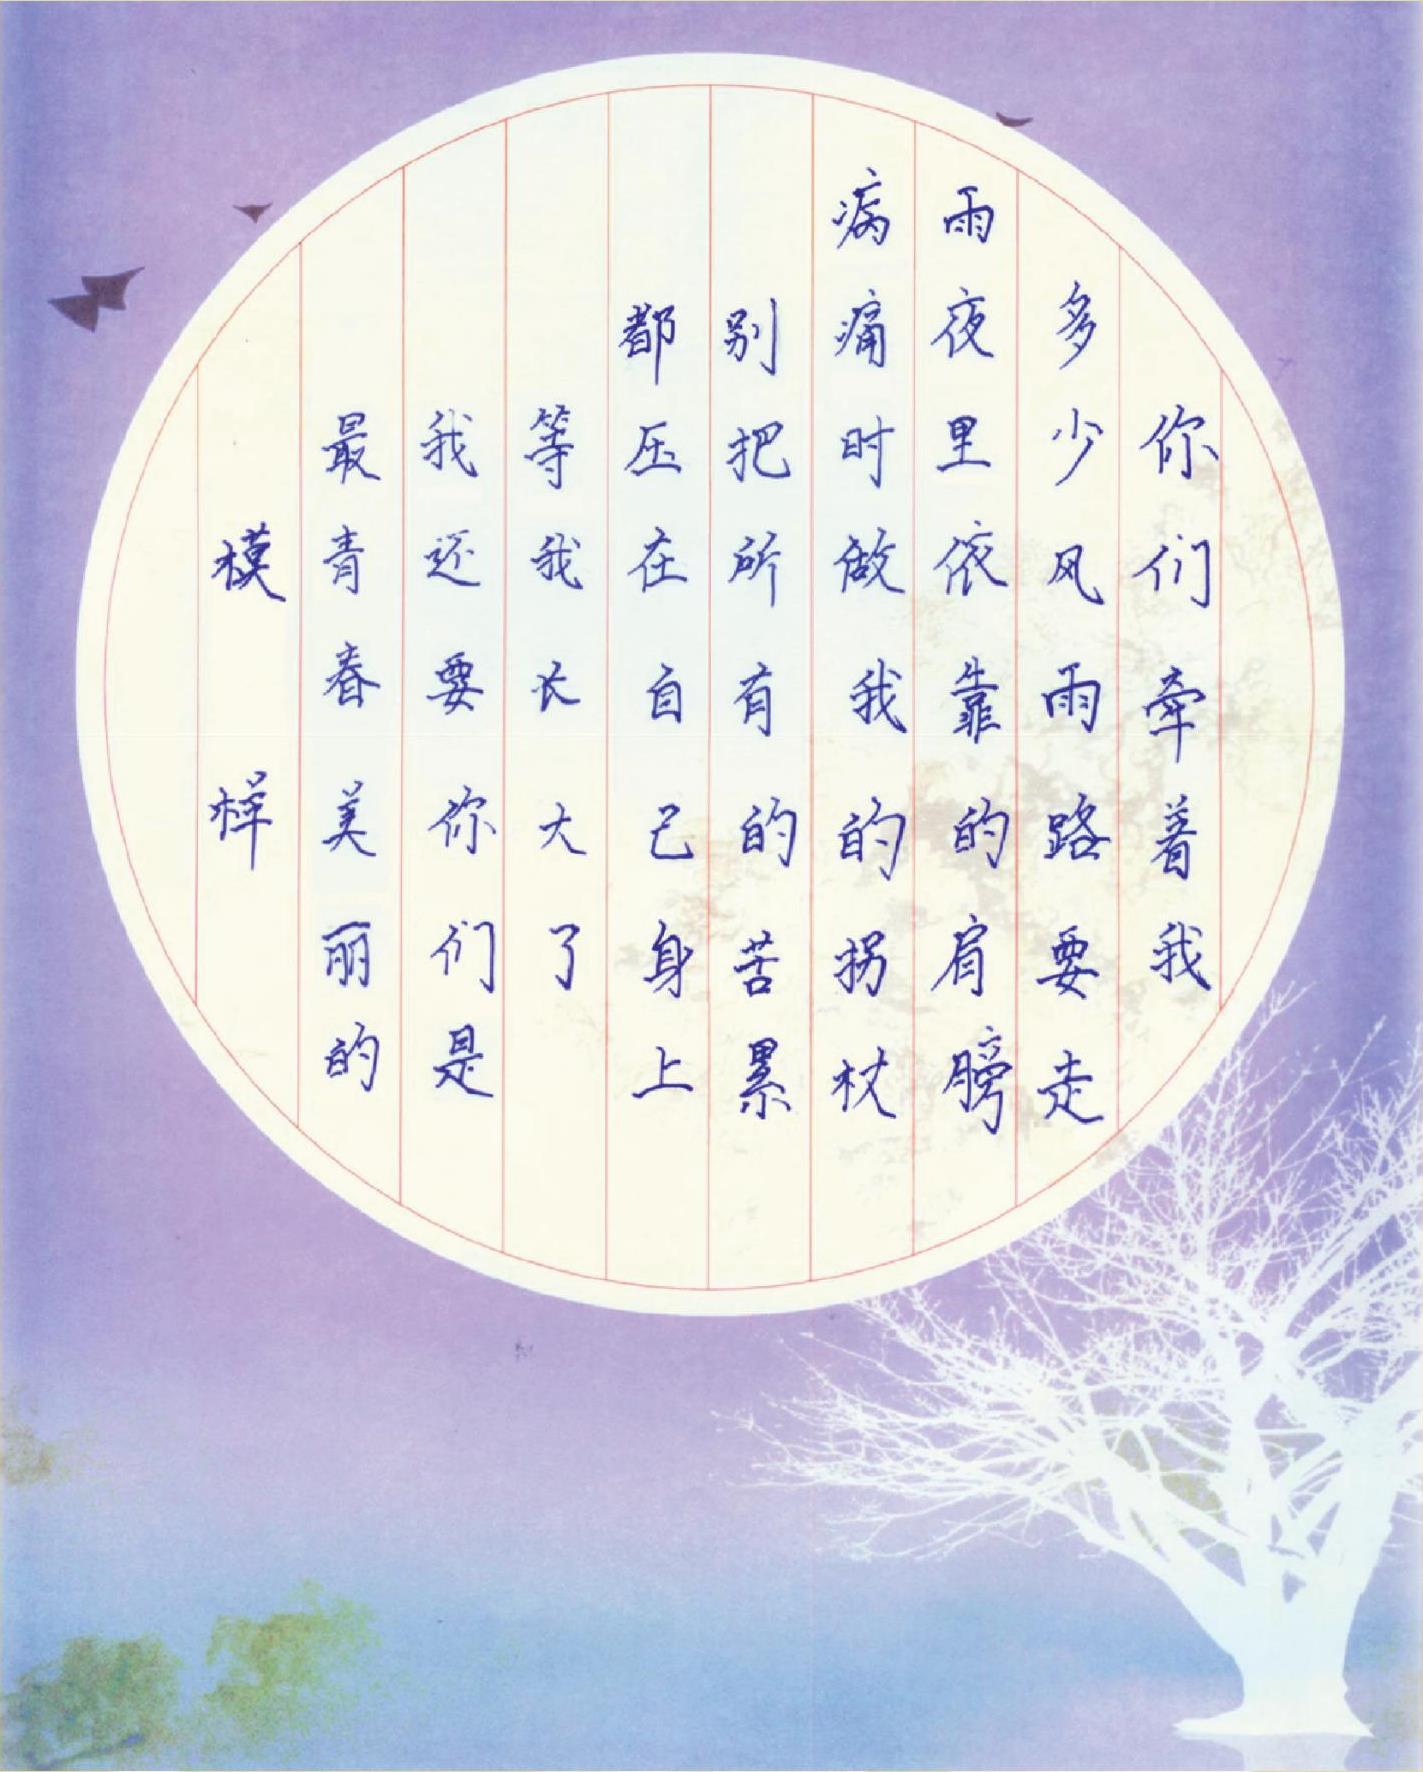 你们牵着我
多少风雨路要走
雨夜里依靠的肩膀
病痛时做我的拐杖
别把所有的苦累
都压在自己身上
等我长大了
我还要你们是
最青春美丽的
模样